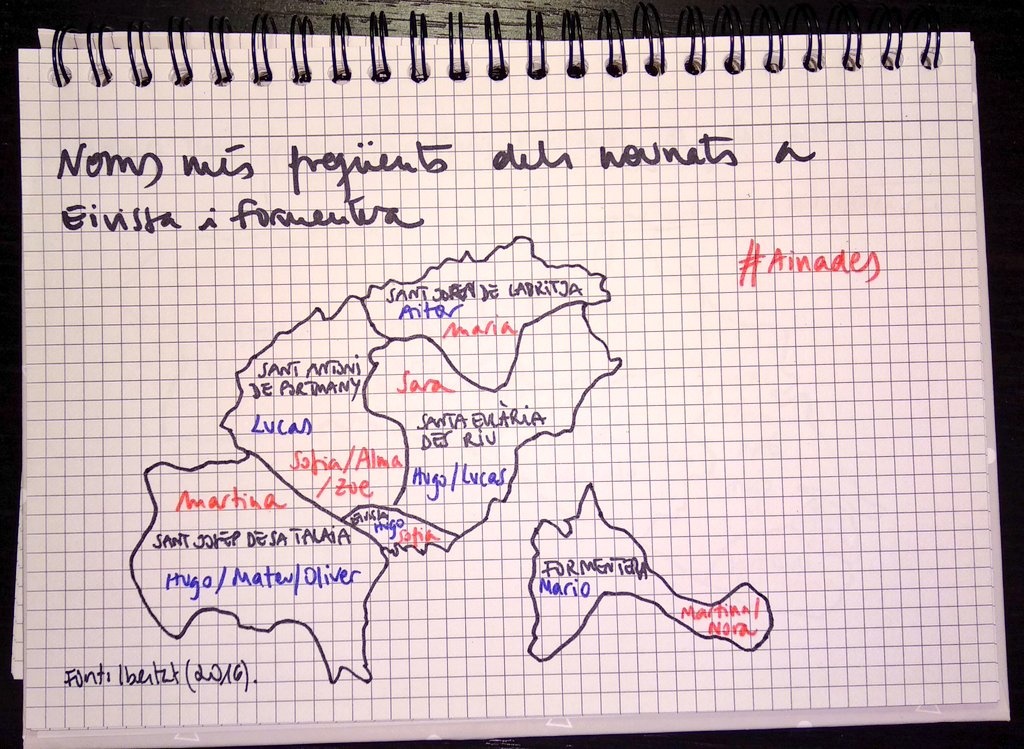 Noms més freqüents dels nounats a
Eivissa i Formentera
#Ainades
SANT JOSEP DE LABRITJA
Aitor
Maria
SANT ANTONI
DE PORTMANY
Lucas
Sofia/Alma
/Zoe
Sara
SANTA EULÀRIA
DES RIU
Hugo/Lucas
Martina
SANT JOSEP DE SA TALAIA
Hugo/Mateu/Oliver
EIVISSA
Hugo
Sofia
FORMENTERA
Mario
Martina/
Nora
Font: Ibestat (2016).